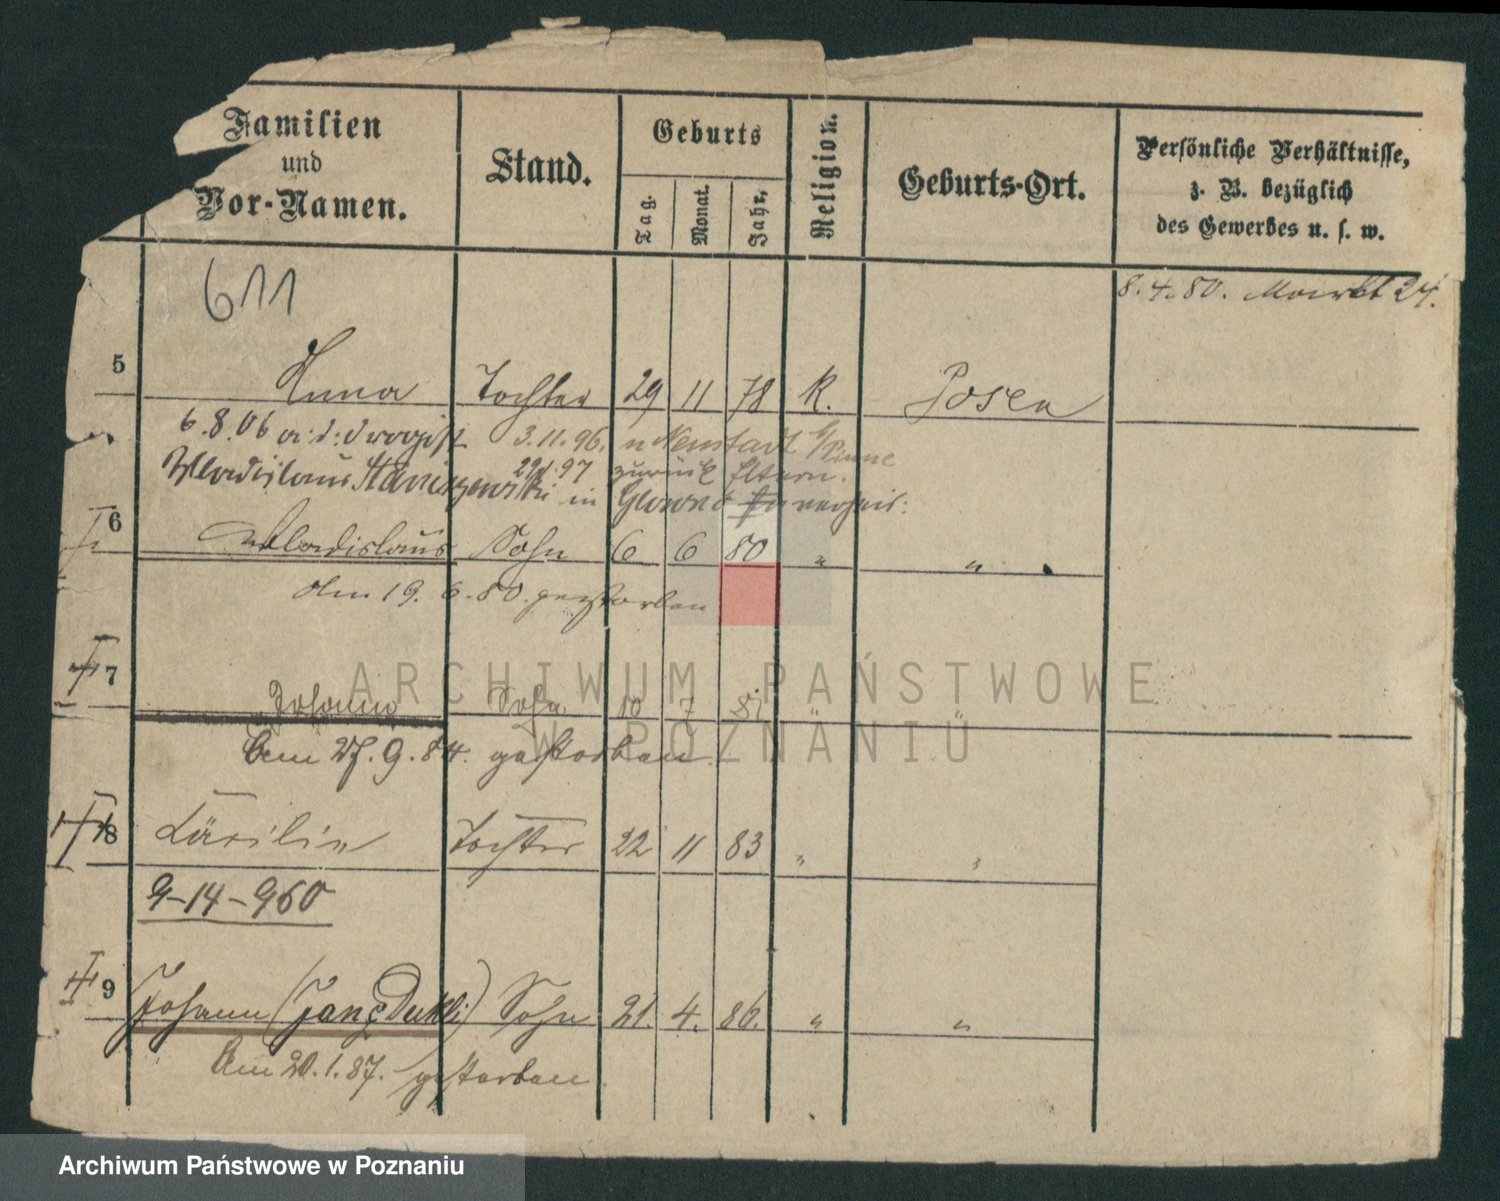 Familien
und
Vor-Namen.
Stand.
Geburts
Tag.
Monat.
Jahr.
Religion.
Geburts-Ort.
Persönliche Verhältnisse,
z. B. bezüglich
des Gewerbes u. s. w.
611
8. 4. 80. Markt 24.
5 Anna Tochter 29 11 78 K. Posen
6.8.06 a. d. Drogist 3.11.96. n Neustadt b/Pinne
Wladislaus 97 zurück Eltern.
in Glowno verheir:
6 Wladislaus Sohn 6 6 80 " "
Am 19. 6. 80. gestorben
7 Johann Sohn 10 7 81 " "
Am 27. 9. 84. gestorben.
8 Cäcilie Tochter 22 11 83 " "
9-14-960
9 Johann (Jan Dukli) Sohn 21. 4. 86. " "
Am 20. 1. 87. gestorben.
ARCHIWUM PAŃSTWOWE
W POZNANIU
Archiwum Państwowe w Poznaniu